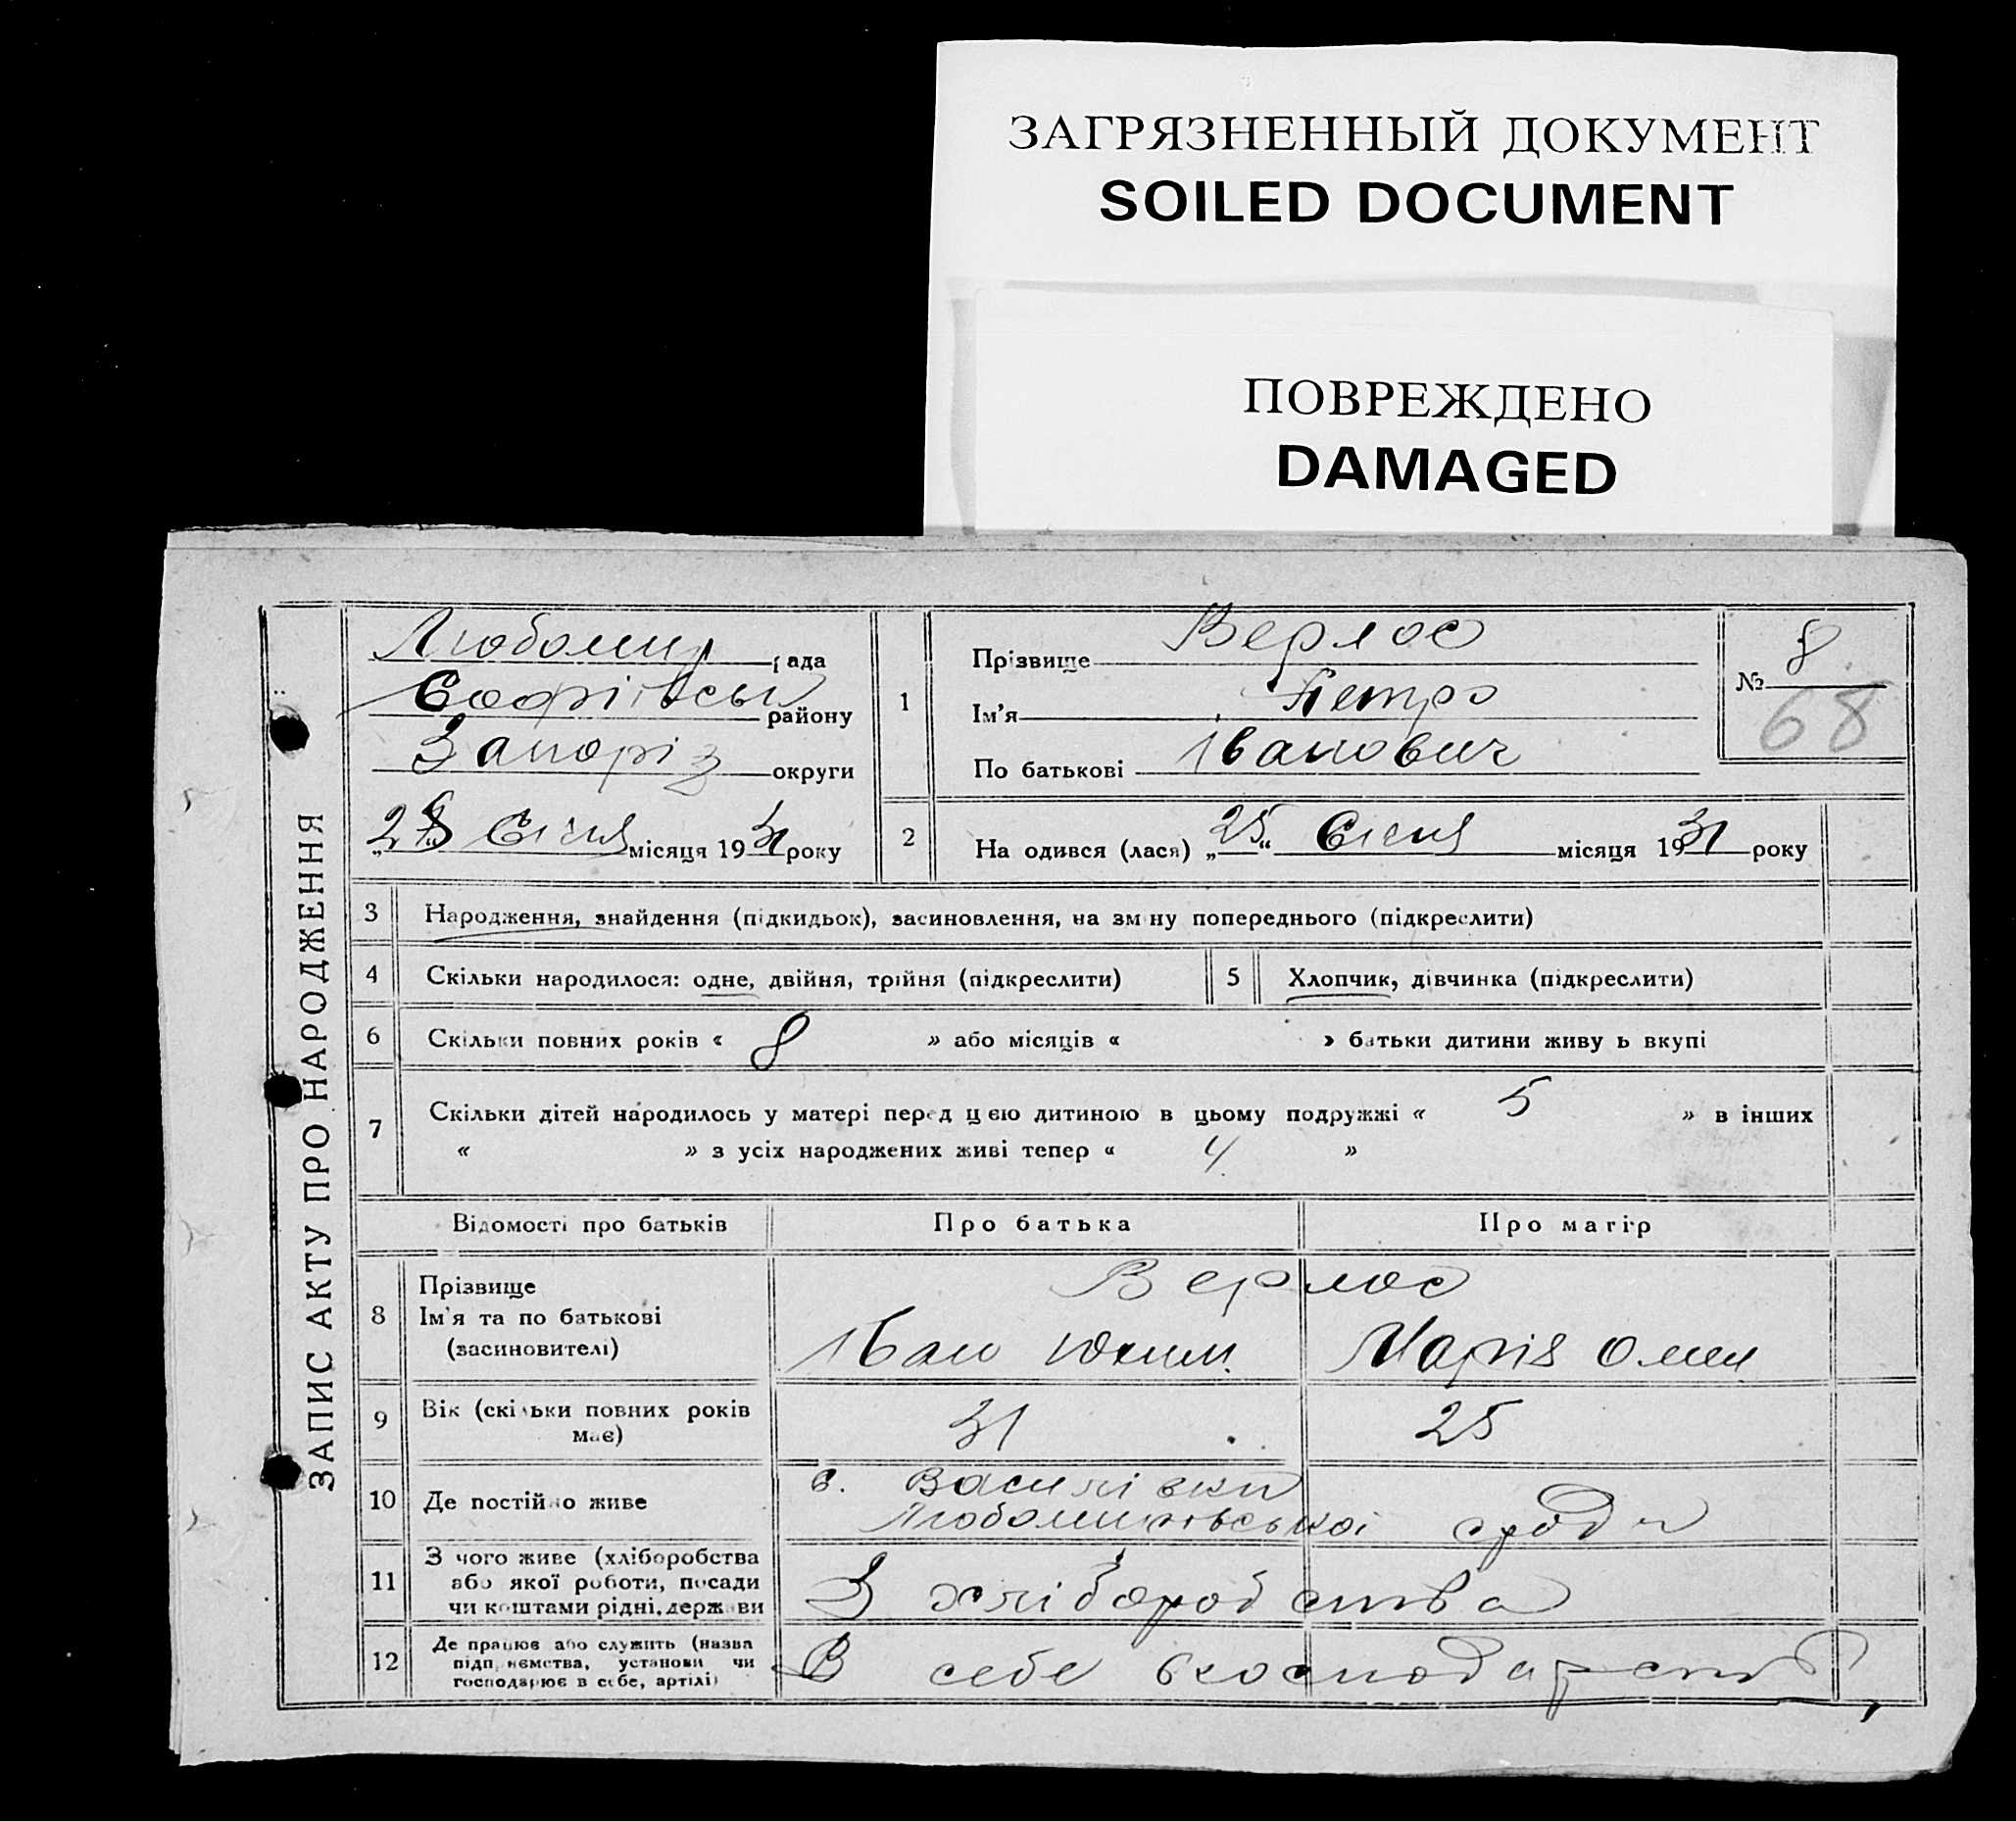 ЗАГРЯЗНЕННЫЙ ДОКУМЕНТ
SOILED DOCUMENT
ПОВРЕЖДЕНО
DAMAGED
ЗАПИС АКТУ ПРО НАРОДЖЕННЯ
Любомир рада
Софіївськ району
Запоріз округи
Січня місяця 1931 року
1
Прізвище Верлос
Ім'я Петро
По батькові Іванович
№ 8
68
2 На одився (лася) „25“ Січня місяця 1931 року
3 Народження, знайдення (підкидьок), засиновлення, на зміну попереднього (підкреслити)
4 Скільки народилося: одне, двійня, трійня (підкреслити) 5 Хлопчик, дівчинка (підкреслити)
6 Скільки повних років « 8 » або місяців « » батьки дитини живу ь вкупі
7 Скільки дітей народилось у матері перед цією дитиною в цьому подружжі « 5 » в інших
« » з усіх народжених живі тепер « 4 »
Відомості про батьків Про батька Про матір
8 Прізвище Верлос
Ім'я та по батькові
(засиновителі) Іван Юхим. Марія Омел
9 Вік (скільки повних років має) 31 25
10 Де постійно живе с. Василівки
Любомирівської сради
11 З чого живе (хліборобства
або якої роботи, посади
чи коштами рідні, держави З хліборобства
12 Де працює або служить (назва
підприємства, установи чи
господарює в себе, артілі) В себе вгосподарстві